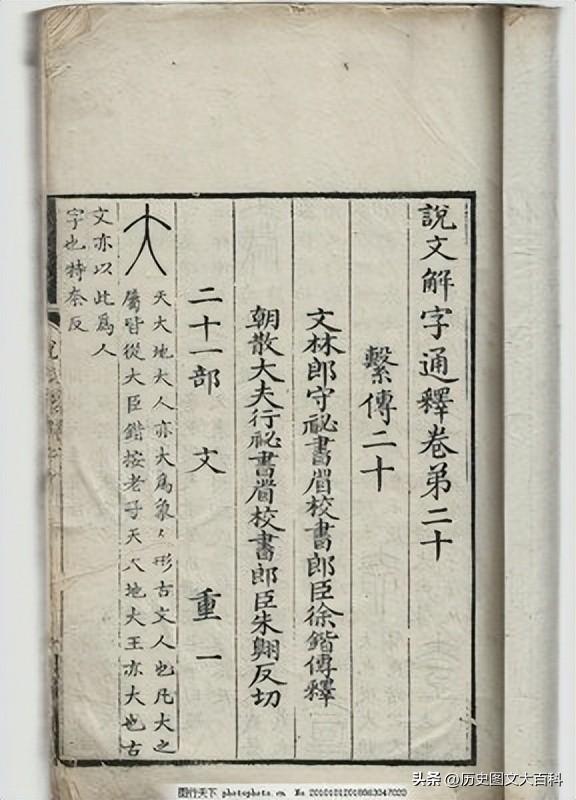 說文解字通釋卷第二十
繫傳二十
文林郎守祕書省校書郎臣徐鍇傳釋
朝散大夫行祕書省校書郎臣朱翱反切
二十一部 文 重一
大
天大地大人亦大爲象人形古文人也凡大之
屬皆從大臣鍇按老子天大地大王亦大也古
文亦以此爲人
字也特奈反
图行天下 photophoto.cn No.
头条 @历史图文大百科